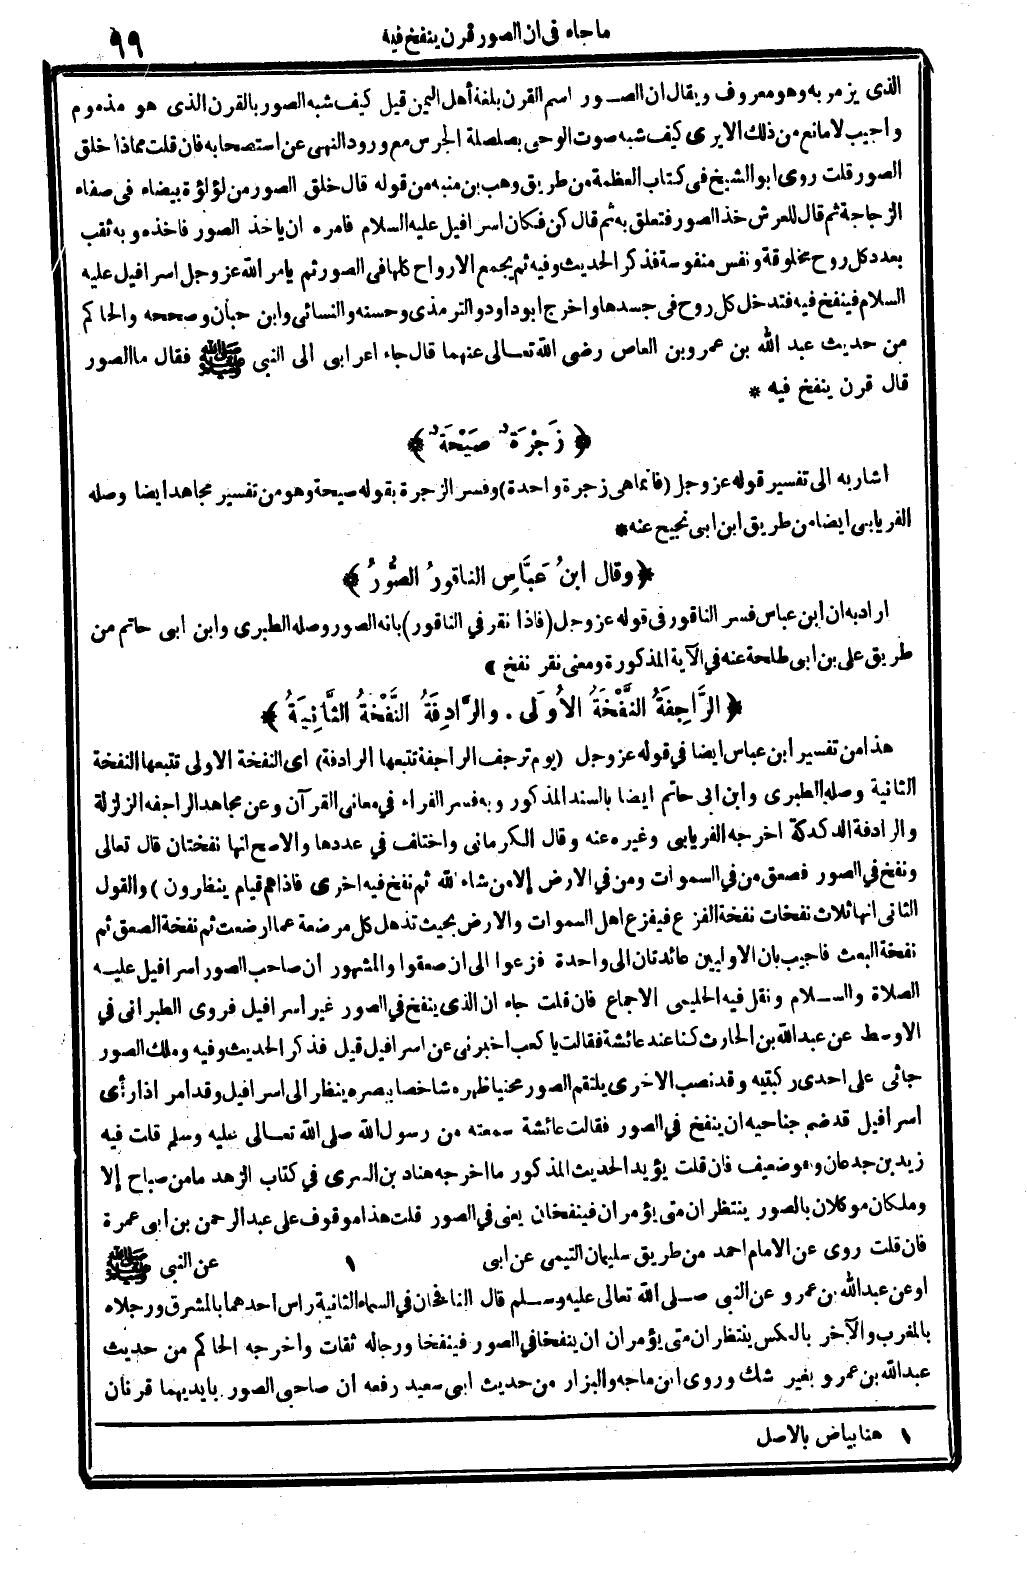 ما جاء فى ان الصور قرن ينفخ فيه
٩٩
الذى يزمر به وهو معروف ويقال ان الصور اسم القرن بلغة أهل اليمن قيل كيف شبه الصور بالقرن الذى هو مذموم
واجيب لا مانع من ذلك الا يرى كيف شبه صوت الوحى بصلصلة الجرس مع ورود النهى عن استصحابه فان قلت مماذا خلق
الصور قلت روى ابو الشيخ فى كتاب العظمة من طريق وهب بن منبه من قوله قال خلق الصور من لؤلؤة بيضاء فى صفاء
الزجاجة ثم قال للعرش خذ الصور فتعلق به ثم قال كن فكان اسرافيل عليه السلام فامره ان ياخذ الصور فاخذه وبه ثقب
بعدد كل روح مخلوقة ونفس منفوسة فذكر الحديث وفيه ثم يجمع الارواح كلها فى الصور ثم يامر الله عز وجل اسرافيل عليه
السلام فينفخ فيه فتدخل كل روح فى جسدها واخرج ابو داود والترمذى وحسنه والنسائى وابن حبان وصححه والحاكم
من حديث عبد الله بن عمرو بن العاص رضى الله تعالى عنهما قال جاء اعرابى الى النبى ﷺ فقال ما الصور
قال قرن ينفخ فيه *
﴿ زَجْرَةٌ صَيْحَةٌ ﴾
اشار به الى تفسير قوله عز وجل (فانما هى زجرة واحدة) وفسر الزجرة بقوله صيحة وهو من تفسير مجاهد ايضا وصله
الفريابى ايضا من طريق ابن ابى نجيح عنه *
﴿ وقال ابنُ عَبَّاسٍ الناقورُ الصُّورُ ﴾
اراد به ان ابن عباس فسر الناقور فى قوله عز وجل (فاذا نقر في الناقور) بانه الصور وصله الطبرى وابن ابى حاتم من
طريق على بن ابى طلحة عنه في الآية المذكورة ومعنى نقر نفخ *
﴿ الرَّاجِفَةُ النَّفْخَةُ الأُولَى . والرَّادِفَةُ النَّفْخَةُ الثَّانِيَةُ ﴾
هذا من تفسير ابن عباس ايضا في قوله عز وجل (يوم ترجف الراجفة تتبعها الرادفة) اى النفخة الاولى تتبعها النفخة
الثانية وصله الطبرى وابن ابى حاتم ايضا بالسند المذكور وبه فسر الفراء في معانى القرآن وعن مجاهد الراجفه الزلزلة
والرادفة الدكدكة اخرجه الفريابى وغيره عنه وقال الكرمانى واختلف في عددها والاصح انها نفختان قال تعالى
ونفخ في الصور فصعق من في السموات ومن في الارض إلا من شاء الله ثم نفخ فيه اخرى فاذا هم قيام ينظرون) والقول
الثانى انها ثلاث نفخات نفخة الفزع فيفزع اهل السموات والارض بحيث تذهل كل مرضعة عما ارضعت ثم نفخة الصعق ثم
نفخة البعث فاجيب بان الاوليين عائدتان الى واحدة فزعوا الى ان صعقوا والمشهور ان صاحب الصور اسرافيل عليه
الصلاة والسلام ونقل فيه الحليمى الاجماع فان قلت جاء ان الذى ينفخ في الصور غير اسرافيل فروى الطبرانى في
الاوسط عن عبد الله بن الحارث كنا عند عائشة فقالت يا كعب اخبرنى عن اسرافيل قيل فذكر الحديث وفيه وملك الصور
جاثى على احدى ركبتيه وقد نصب الاخرى يلتقم الصور محنيا ظهره شاخصا ببصره ينظر الى اسرافيل وقد امر اذا رأى
اسرافيل قد ضم جناحيه ان ينفخ في الصور فقالت عائشة سمعته من رسول الله صلى الله تعالى عليه وسلم قلت فيه
زيد بن جدعان وهو ضعيف فان قلت يؤيد الحديث المذكور ما اخرجه هناد بن السرى في كتاب الزهد ما من صباح إلا
وملكان موكلان بالصور ينتظران متى يؤمران فينفخان يعنى في الصور قلت هذا موقوف على عبد الرحمن بن ابى عمرة
فان قلت روى عن الامام احمد من طريق سليمان التيمى عن ابى ١ عن النبى ﷺ
او عن عبد الله بن عمرو عن النبى صلى الله تعالى عليه وسلم قال النافخان في السماء الثانية راس احدهما بالمشرق ورجلاه
بالمغرب والآخر بالعكس ينتظران متى يؤمران ان ينفخا في الصور فينفخا ورجاله ثقات واخرجه الحاكم من حديث
عبد الله بن عمرو بغير شك وروى ابن ماجه والبزار من حديث ابى سعيد رفعه ان صاحبى الصور بايديهما قرنان
١ هنا بياض بالاصل